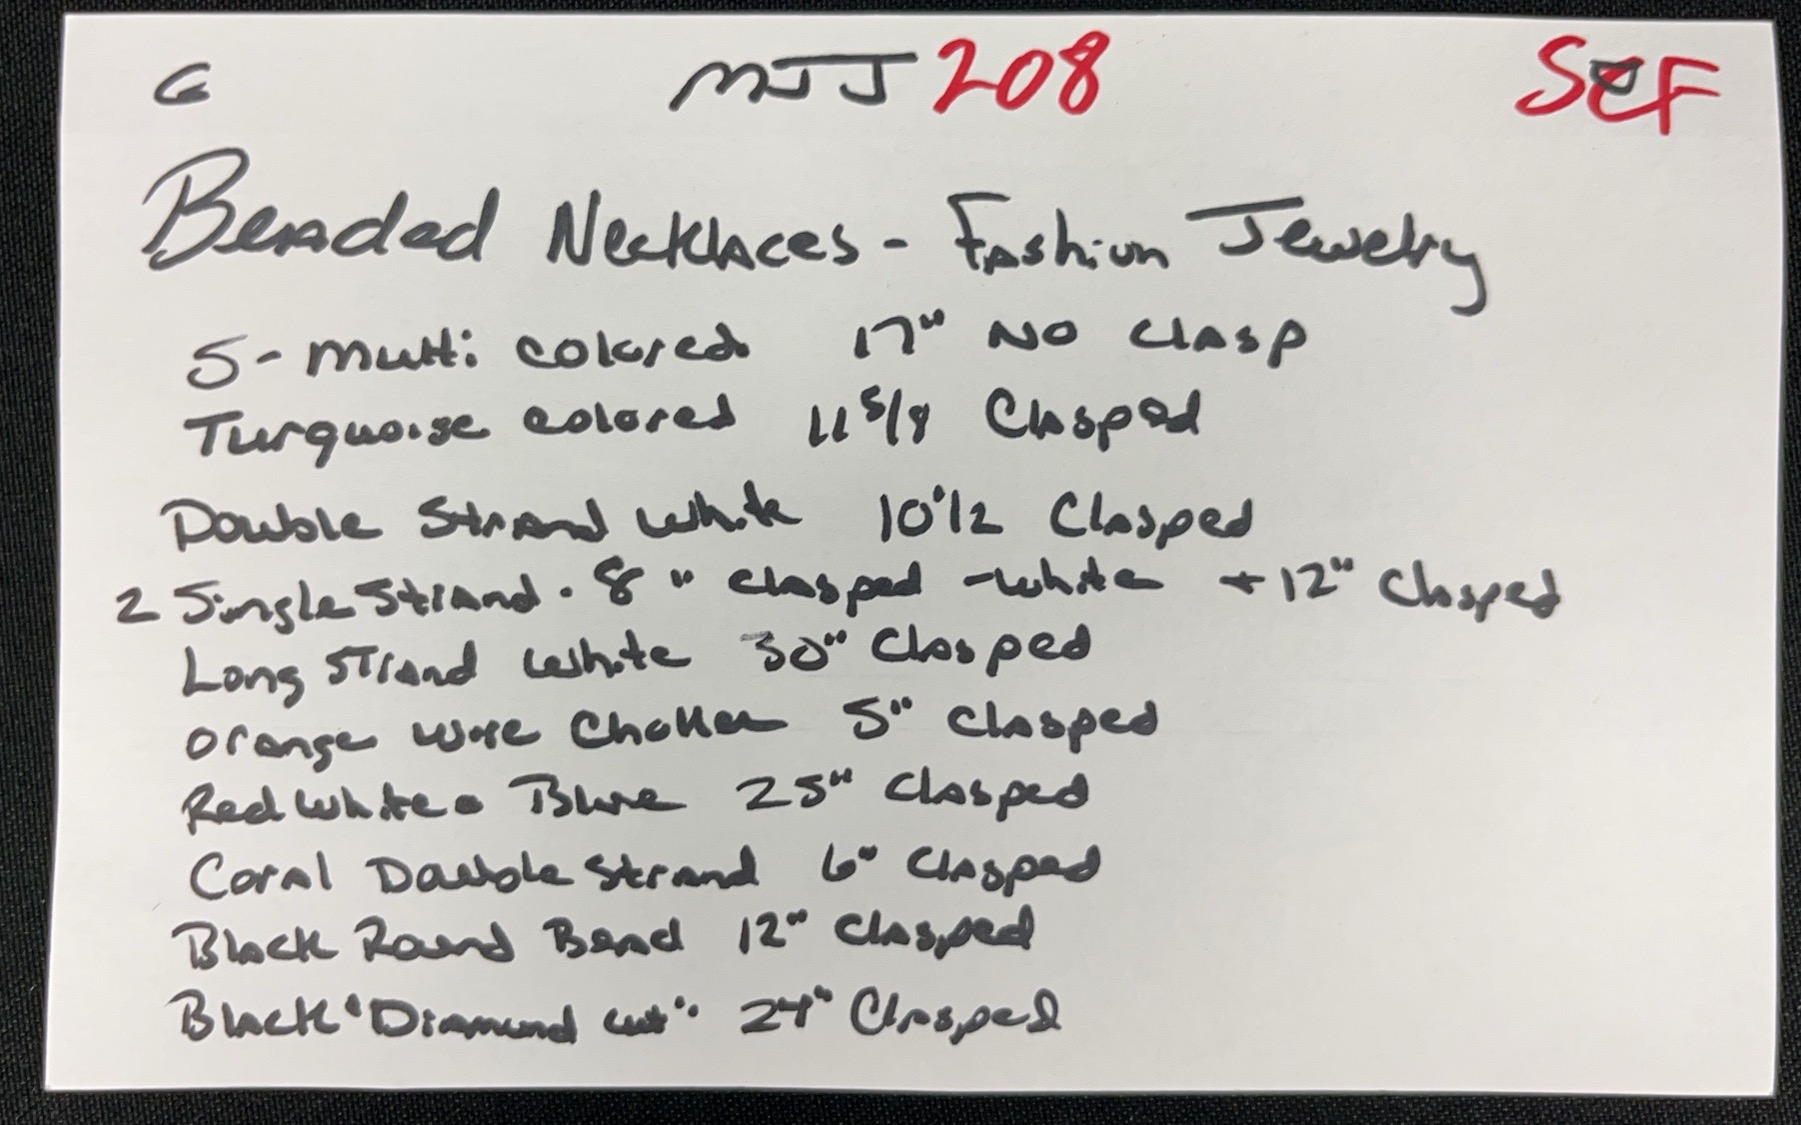 G MJJ 208 SEF
Beaded Necklaces - Fashion Jewelry
5 - multi colored 17" No clasp
Turquoise colored 11 5/8 Clasped
Double Strand White 10 1/2 Clasped
2 Single Strand. 8" clasped - white + 12" Clasped
Long Strand White 30" Clasped
Orange wire Choker 5" Clasped
Red White & Blue 25" Clasped
Coral Double Strand 6" Clasped
Black Round Bead 12" Clasped
Black "Diamond cut" 24" Clasped